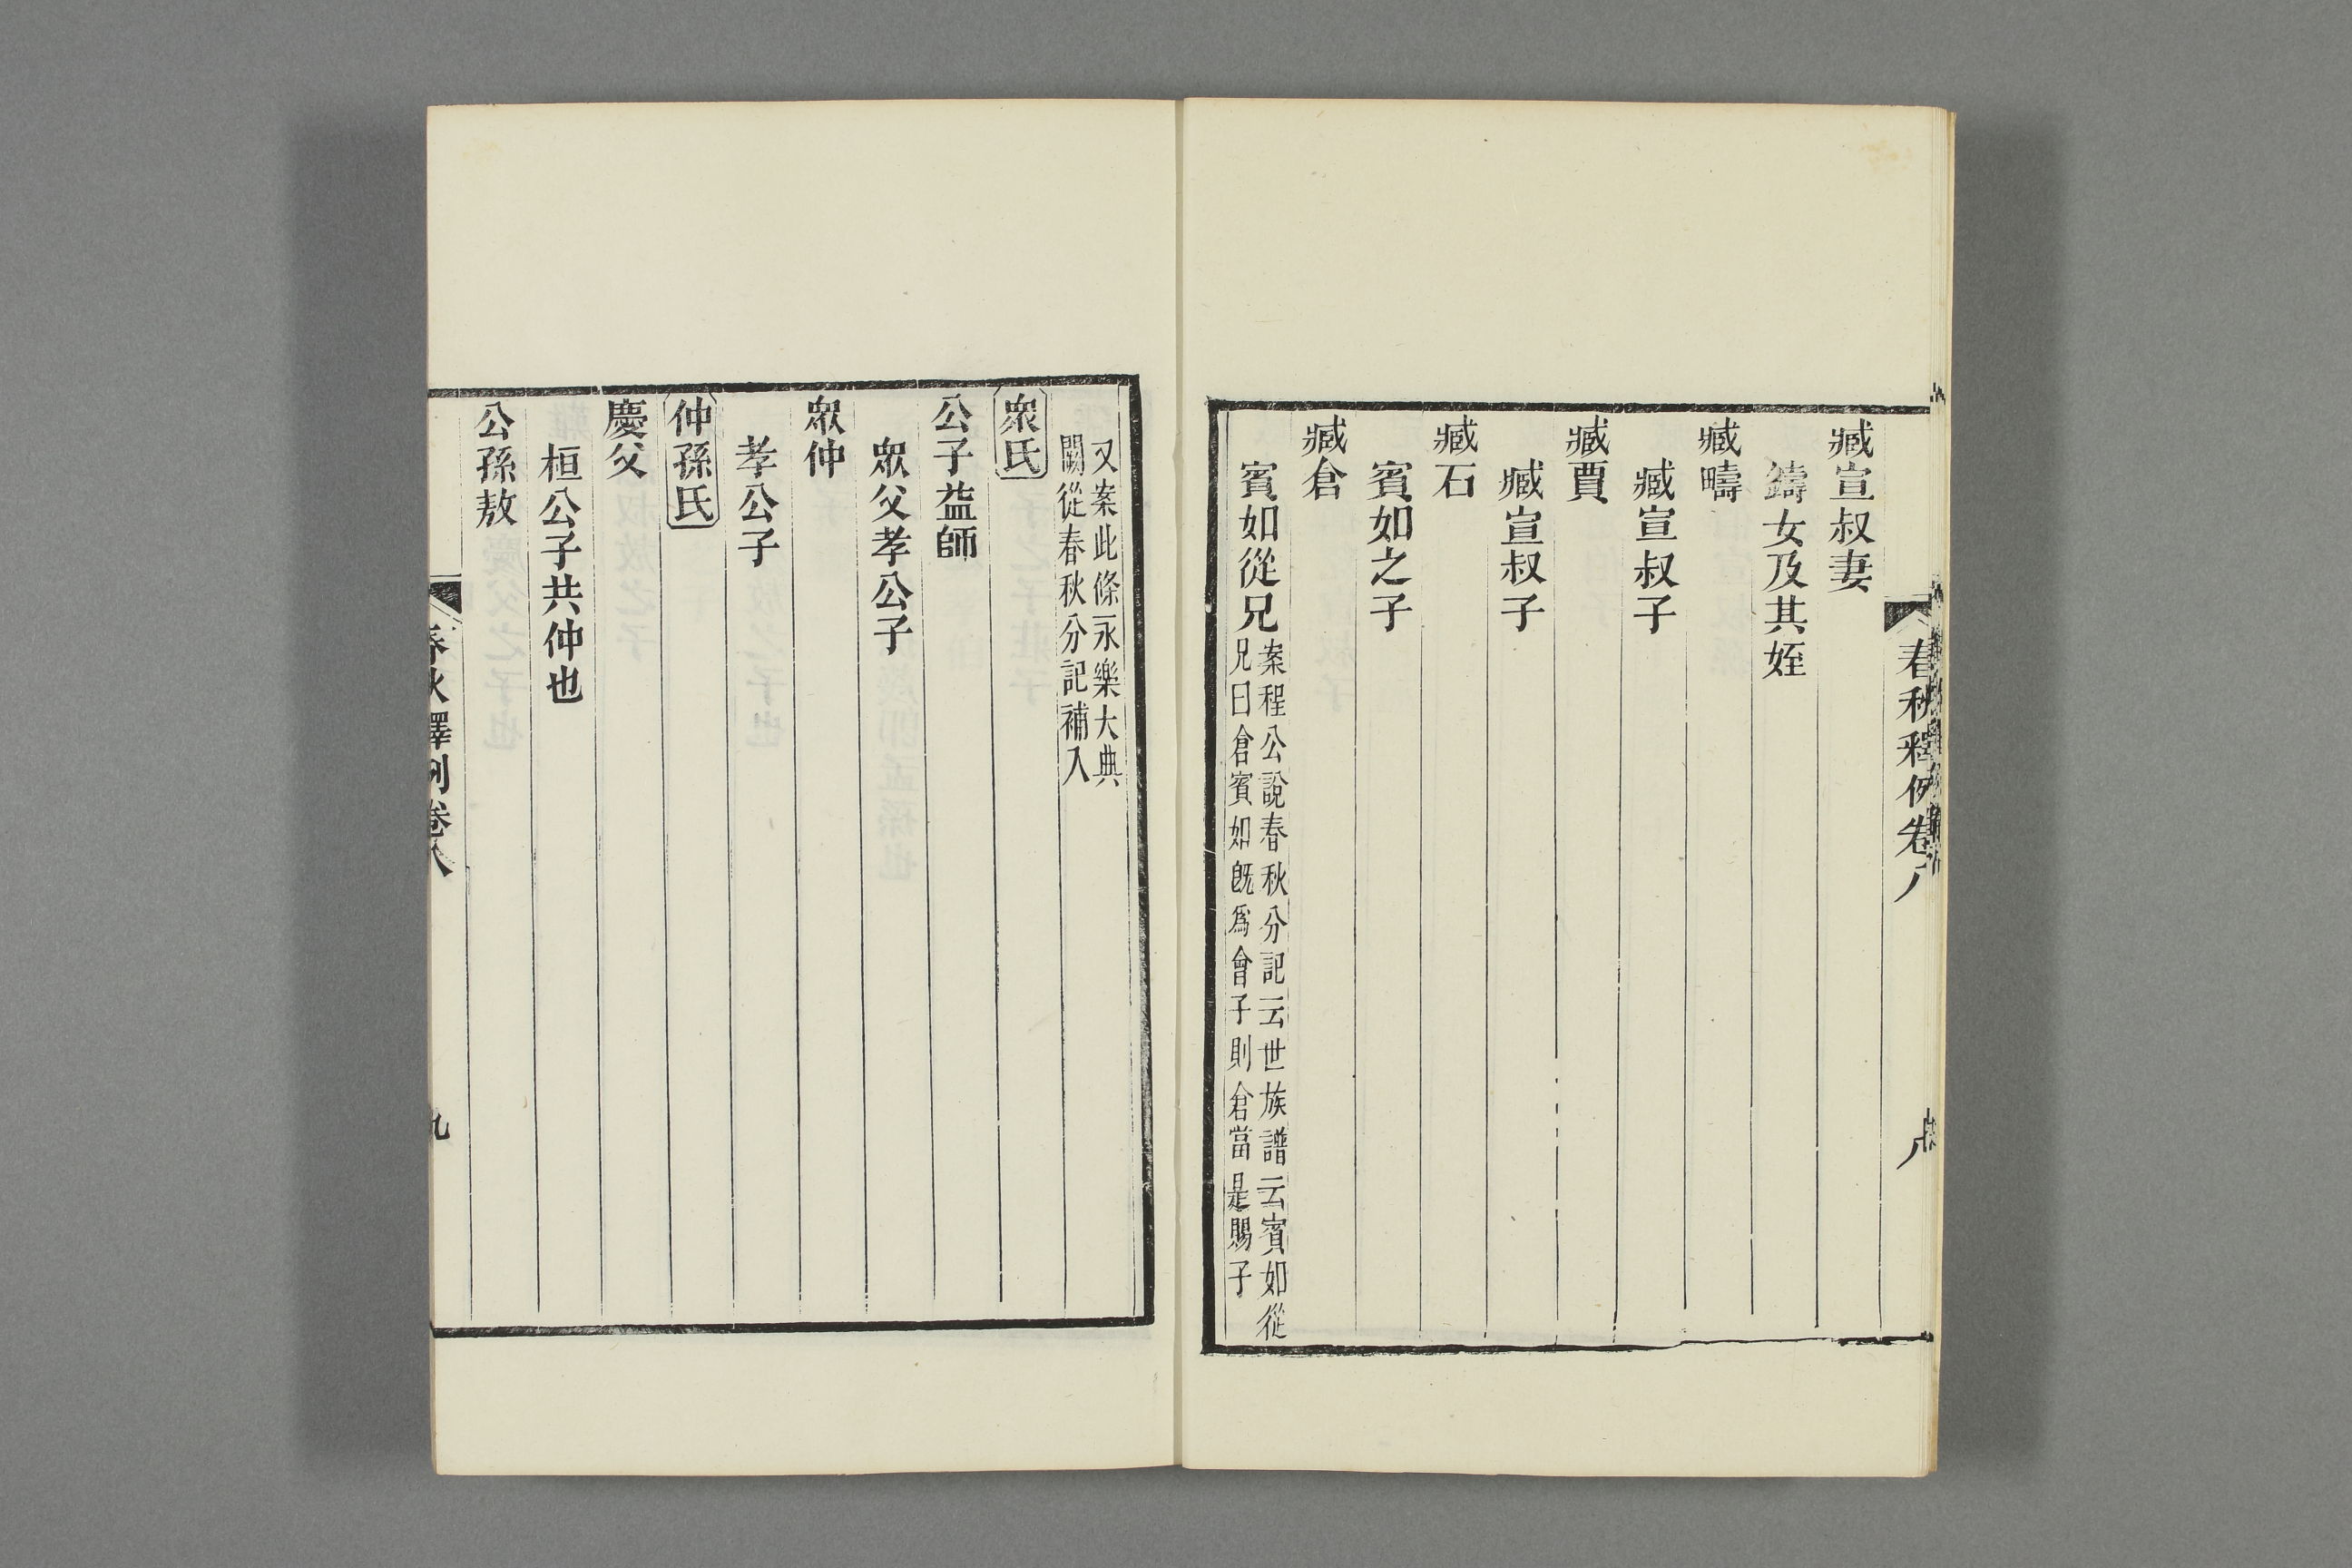 春秋釋例卷八
八
臧宣叔妻
鑄女及其姪
臧疇
臧宣叔子
臧賈
臧宣叔子
臧石
賓如之子
臧倉
賓如從兄案程公說春秋分記云世族譜云賓如從
兄曰倉賓如既爲會子則倉當是賜子
又案此條永樂大典
闕從春秋分記補入
衆氏
公子益師
衆父孝公子
衆仲
孝公子
仲孫氏
慶父
桓公子共仲也
公孫敖
春秋釋例卷八
九